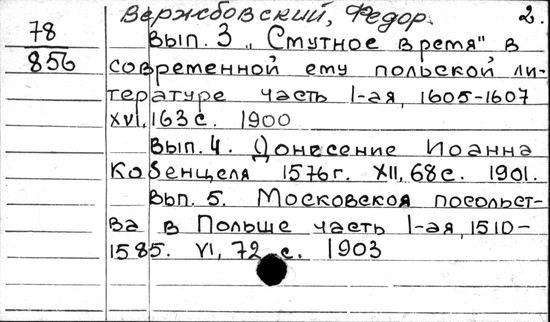 Вержбовский, Федор. 2.
78
856
вып. 3 „Смутное время" в
современной ему польской ли-
тературе часть I-ая, 1605-1607
XVI, 163 с. 1900
вып. 4. Донесение Иоанна
Кобенцеля 1576 г. XII, 68 с. 1901.
вып. 5. Московская посольст-
ва в Польше часть I-ая, 1510-
1585. VI, 72 с. 1903